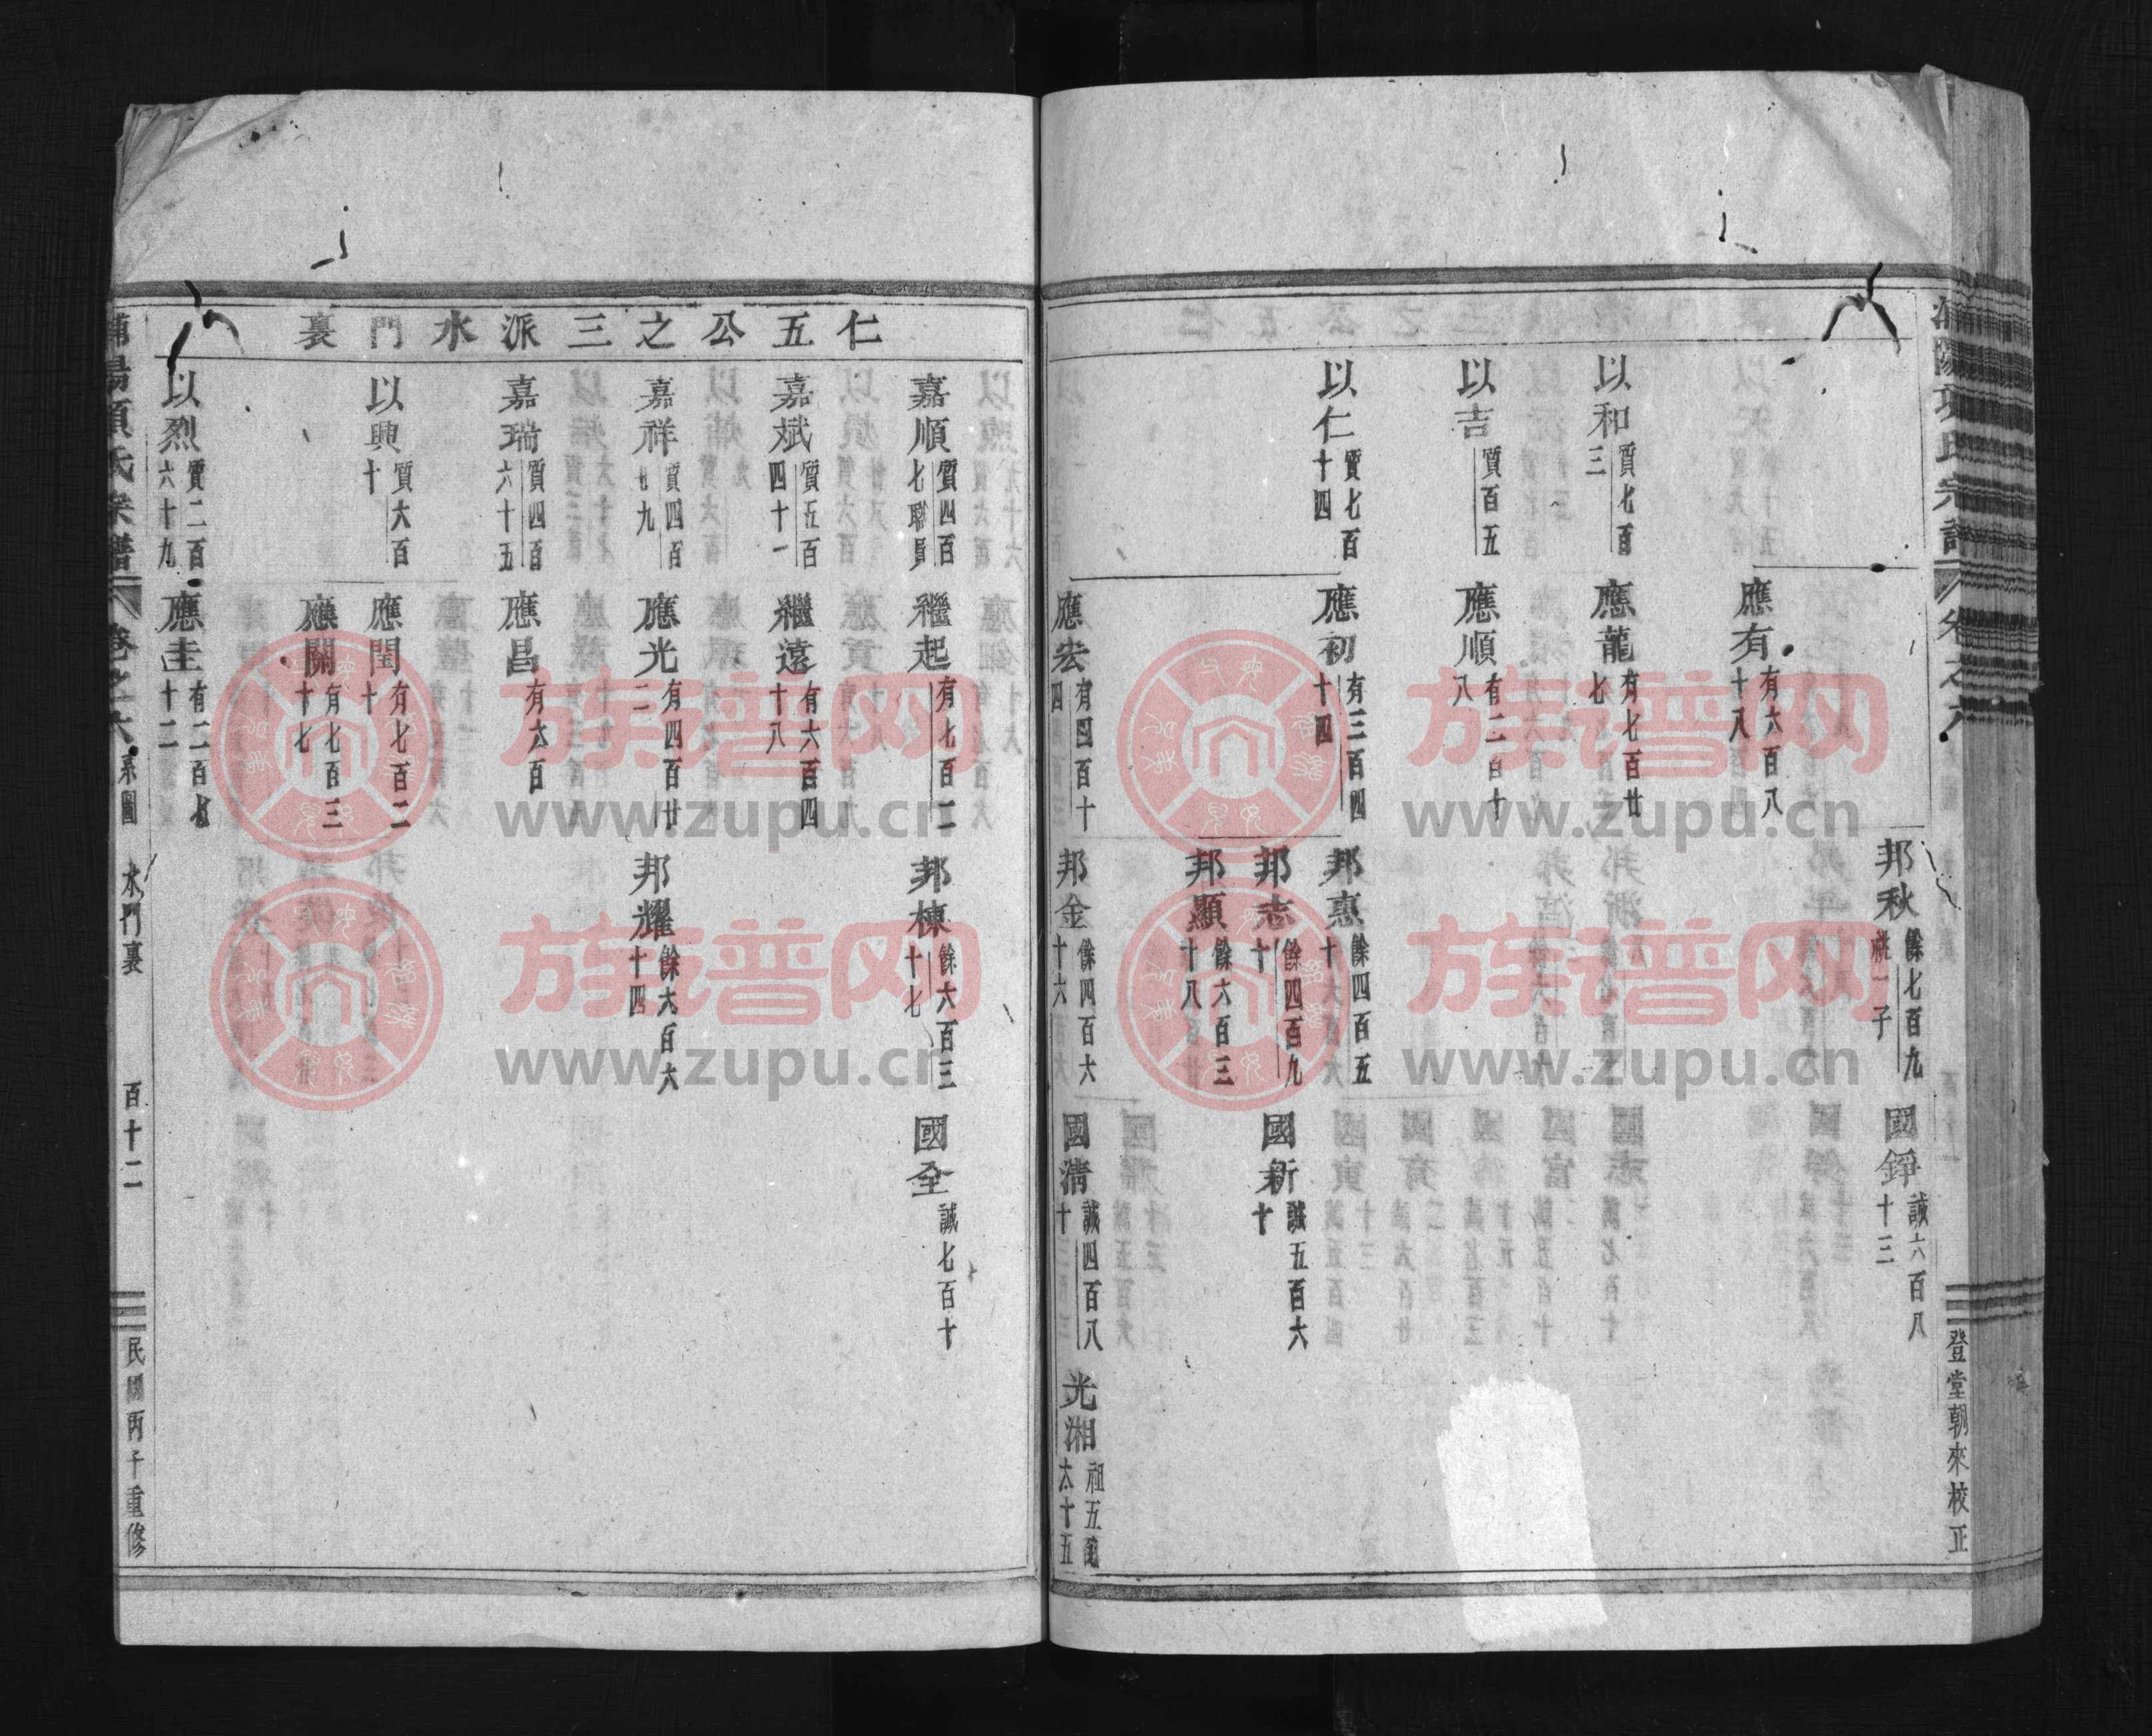 邦秋 餘七百九 祧一子
國錚 誠六百八 十三
應有 有六百八 十八
以和 質七百 三
應龍 有七百廿 七
以吉 質百五
應順 有二百十 八
以仁 質七百 十四
應初 有三百四 十四
邦惠 餘四百五 十
邦志 餘四百九 十
國新 誠五百六 十
邦顯 餘六百三 十八
應宏 有四百十 四
邦金 餘四百六 十六
國清 誠四百八 十
光湘 祖五百 六十五
登堂朝來校正
仁五公之三派水門裏
嘉順 質四百 七職員
繼起 有七百二
邦棟 餘六百三 十七
國全 誠七百十
嘉斌 質五百 四十一
繼遠 有六百四 十八
嘉祥 質四百 廿九
應光 有四百廿 二
邦耀 餘六百六 十四
嘉瑞 質四百 六十五
應昌 有六百
以興 質六百 十
應閏 有七百二 十
應關 有七百三 十七
以烈 質二百 六十九
應圭 有二百七 十二
浦陽項氏宗譜 卷之六 系圖 水門裏 百十二 民國丙子重修
族谱网
www.zupu.cn
族谱网
www.zupu.cn
族谱网
www.zupu.cn
族谱网
www.zupu.cn